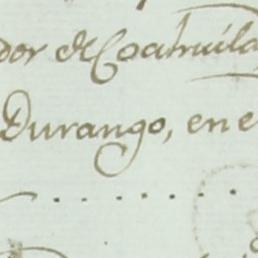 dor de Coahuila
Durango, en e